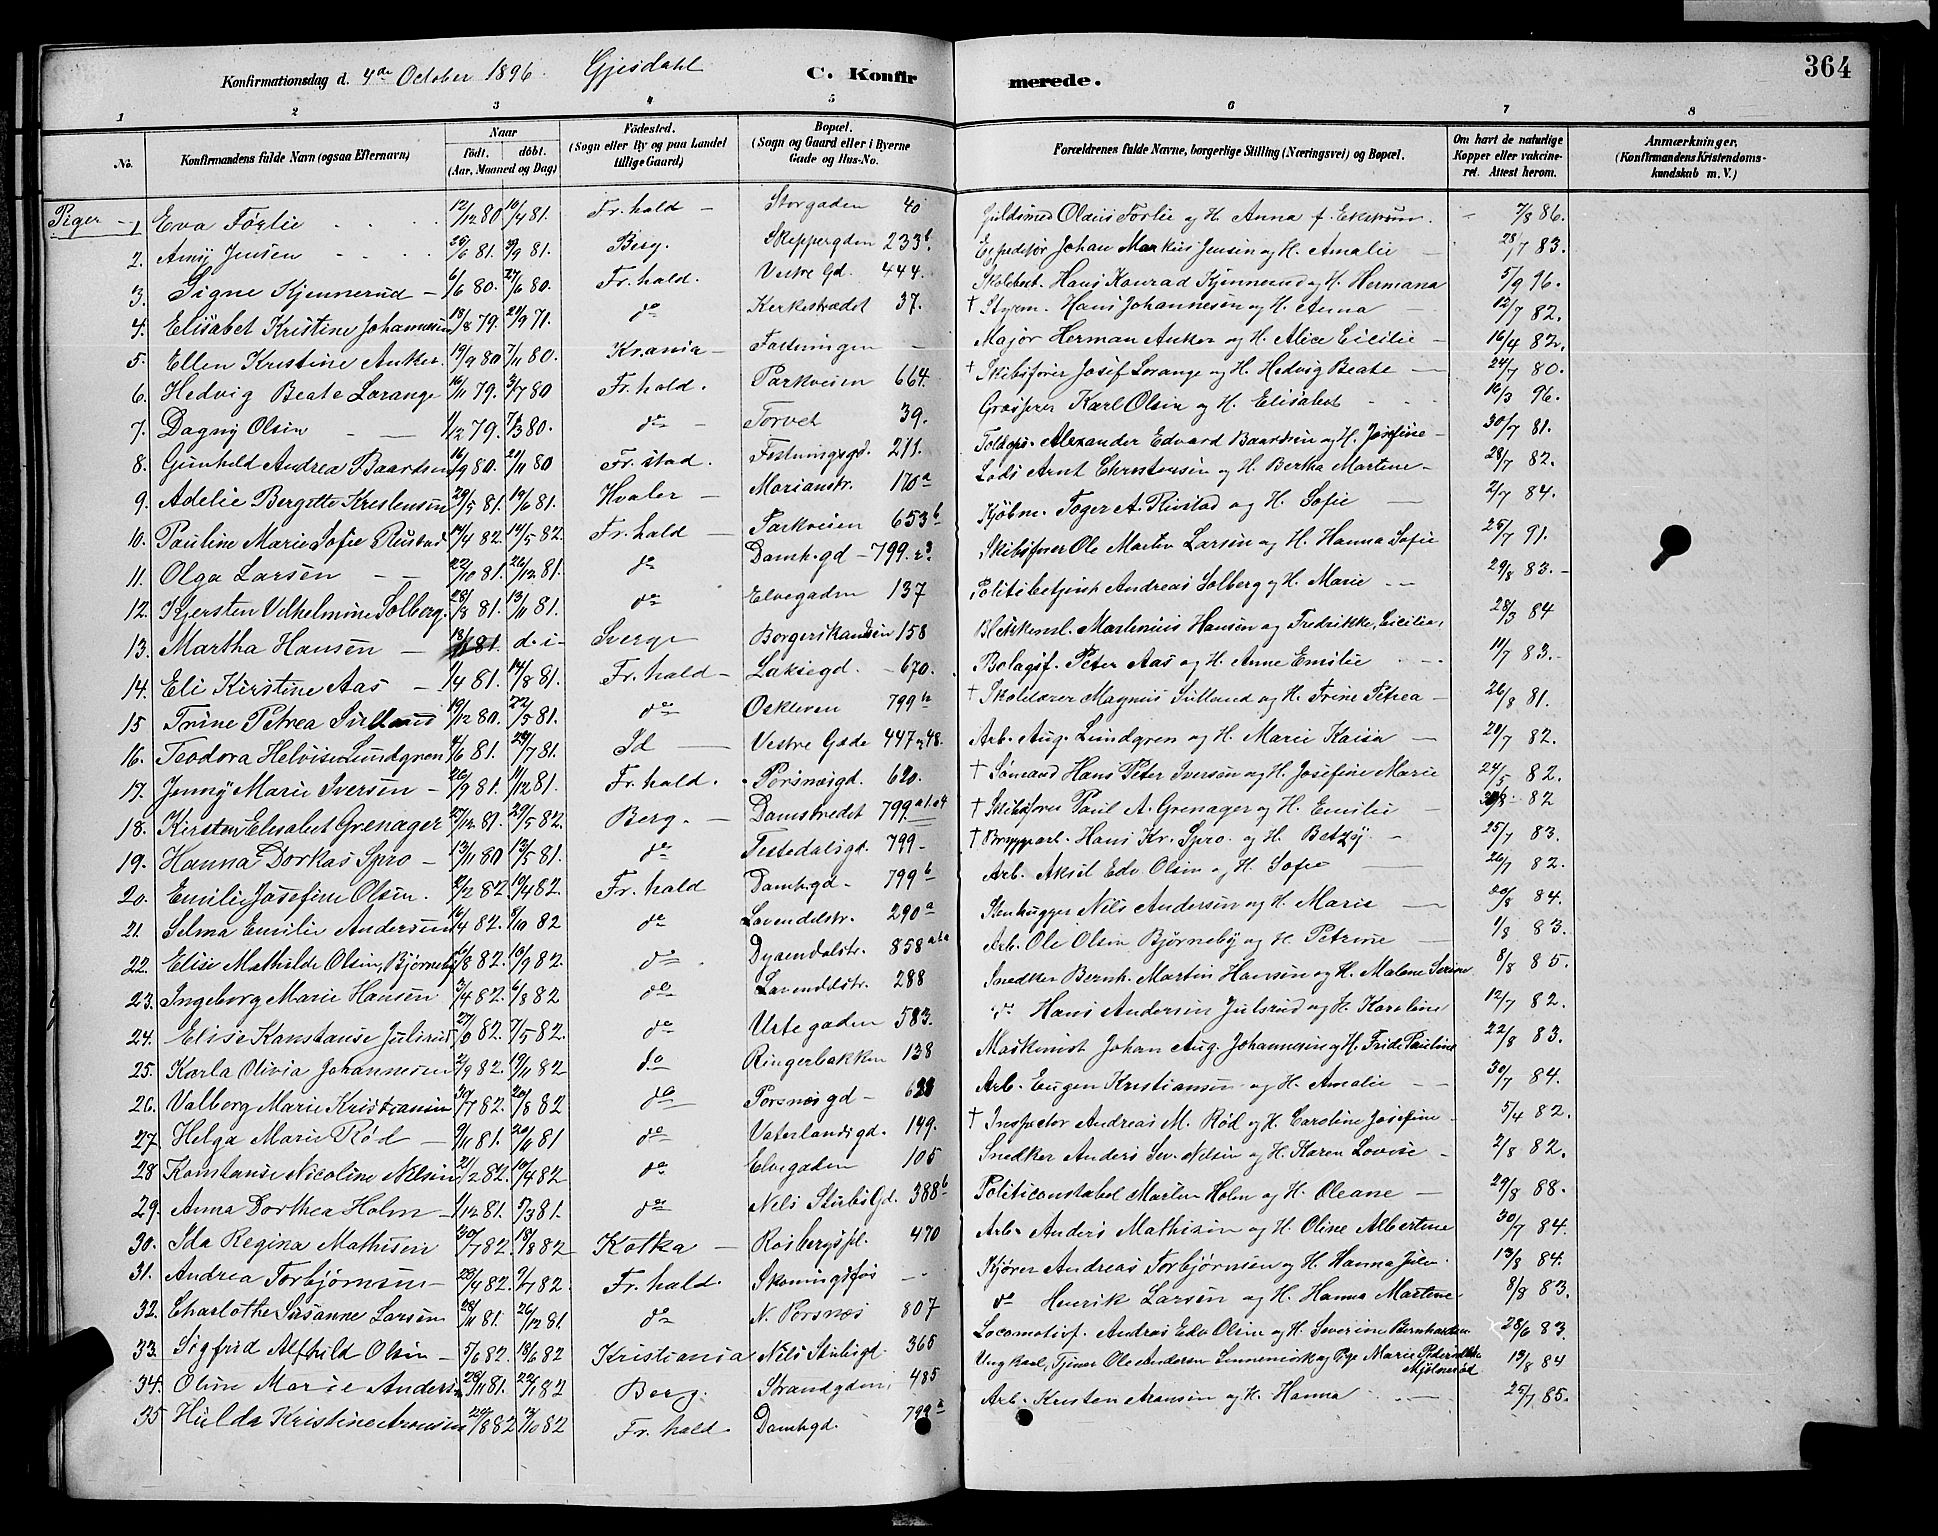 364
Konfirmationsdag d. 4de October 1896. Gjesdahl C. Konfirmerede.
1 2 3 4 5 6 7 8
No. Konfirmandens fulde Navn (ogsaa Efternavn) Naar født. døbt. (Aar, Maaned og Dag) Fødested. (Sogn eller By og paa Landet tillige Gaard) Bopæl. (Sogn og Gaard eller i Byerne Gade og Hus-No. Forældrenes fulde Navne, borgerlige Stilling (Næringsvei) og Bopæl. Om havt de naturlige Kopper eller vakcineret. Attest herom. Anmærkninger, (Konfirmandens Kristendomskundskab m. V.)
Piger - 1. Eva Førlie 12/12 80 10/4 81. Fr.hald - Storgaden 40 Guldsmed Olaus Forlie og H. Anna f. - 7/8 86.
2. Amy Jensen 25/6 81. 3/9 81. Berg. Skeppergden 233b. Expeditør Johan Markus Jensen og H. Amalie 28/7 83.
3. Signe Kjennerud - 6/6 80. 27/6 80. Fr.hald. Vestre Gd. 444. Skolebest. Hans Konrad Kjennerud og H. Hermana 5/9 96.
4. Elisabet Kristine Johannesen 13/8 79. 21/9 71. do Kerkestrædet 37. † Styrm. Hans Johannesen og H. Anna 12/7 82.
5. Ellen Kristine Anker. 19/9 80 7/11 80. Krania - Fæstningen Major Herman Anker og H. Alice Cicilie - 16/4 82.
6. Hedvig Beate Lorange 16/11 79. 3/7 80 Fr.hald. Parkveien 664. † Skibsfører Josef Lorange og H. Hedvig Beate 24/7 80.
7. Dagny Olsen 1/12 79. 7/3 80. do - Torvet 39. Grosserer Karl Olsen og H. Elisabet 16/3 96.
8. Gunhild Andrea Baardsen 16/9 80. 21/11 80 Fr.stad. Festningsgd. 211. Toldops. Alexander Edvard Baardsen og H. Josefine - 30/7 81.
9. Adelie Bergette Kristensen 29/5 81. 19/6 81. Hvaler - Marianstr. 170a Lods Arnt Christensen og H. Bertha Martene - 28/7 82.
10. Pauline Marie Sofie Rustad 14/4 82. 14/5 82. Fr.hald - Parkveien 653b Kjøbm. Toger A. Rustad og H. Sofie 2/7 84.
11. Olga Larsen 22/10 81. 26/12 81. do Damh.gd - 799.r3. Skibsfører Ole Martin Larsen og H. Hanna Sofie 25/7 91.
12. Kjersten Vilhelmine Solberg. 28/8 81. 13/11 81. do Elvegaden 137 Politibetjent Andreas Solberg og H. Marie 29/8 83. -
13. Martha Hansen - d. i - Sverge Borgerskandsen 158 Blikkensl. Martinius Hansen og Fredrikke Cicilie, 28/3 84
14. Eli Kirstine Aas - 1/4 81. 14/8 81. Fr.hald - Laksegd. - 670. Bolagsf. Peter Aas og H. Anne Emilie 11/7 83. -
15 Trine Petrea Sulland 19/12 80. 22/5 81. do Oskleven 799 † Skolelærer Magnus Sulland og H. Trine Petrea - 26/8 81.
16. Teodora Helvise Lundgren 4/6 81. 24/7 81. Id Vestre Gade 447 & 48. Arb. Aug. Lundgren og H. Marie Kaisa - 20/7 82.
17. Jenny Marie Iversen - 26/9 81. 11/12 81. Fr.hald. Porsnesgd. 620. † Sømand Hans Peter Iversen og H. Josefine Marie 24/5 82.
18. Kirsten Elisabet Grenager 27/12 81. 29/5 82. Berg. - Damstredet 799 a1.a4 † Skibsfører Paul A. Grenager og H. Emilie - 82
19. Hanna Dorkas Spro - 13/11 80 13/5 81. do Tistedalsgd. 799 - † Bryggearb. Hans Kr. Spro. og H. Betzy. 25/7 83.
20. Emilie Josefine Olsen. 2/2 82. 10/4 82. Fr.hald Damh.gd. 799b Arb. Aksel Edv Olsen og H. Sofie 26/7 82.
21. Selma Emilie Andersen 16/4 82. 8/10 82 do Lavendelstr. 290a Stenhugger Nils Andersen og H. Marie 20/8 84.
22. Elise Mathilde Olsen, Bjørneby 6/8 82. 13/9 82. do Dyrendalstr. 858 Arb. Ole Olsen Bjørneby og H. Petrine 1/8 83.
23. Ingeborg Marie Hansen 3/4 82. 6/8 82 do Lavendelstr. 288 Snedker Bernh. Martin Hansen og H. Malene Serine 8/8 85.
24. Elise Konstanse Julsrud, 82. 7/5 82. do Urtegaden 583. do Hans Andersen Julsrud og H. Karoline 12/7 82.
25. Karla Olivia Johannesen 2/9 82. 19/11 82 do Ringerbakken 138 Maskinist Johan Aug. Johannesen og H. Fride Pauline 22/8 83.
26. Valborg Marie Kristiansen 30/7 82. 20/8 82 do Porsnesgd - 628 Arb. Eugen Kristiansen og H. Amalie 30/7 84.
27. Helga Marie Rød 9/11 81. 20/11 81 do Vaterlandsgd. 149. † Inspektor Andreas M. Rød og H. Caroline Josefine - 5/4 82.
28 Konstanse Nicoline Nilsen 21/2 82. 10/4 82 do Elvegaden 105 Snedker Anders Sev. Nilsen og H. Karen Lovise - 2/8 82.
29. Anna Dorthea Holm 1/12 81. 5/3 81. do Nils Stubs Gd. 388b Politiconstabel Martin Holm og H. Oleane 29/8 88.
30. Ida Regina Mathisen 30/7 82. 18/8 82 Kotka Rosbergspl. 470 Arb. Anders Mathisen og H. Oline Albertine 30/7 84.
31. Andrea Torbjørnsen 23/4 82. 9/7 82. Fr.hald. Skoningsfos Kjører Andreas Torbjørnsen og H. Hanna Julie. 13/8 84.
32. Charlothe Susanne Larsen 28/11 81. 26/12 81. do N. Porsnes 807 do Henrik Larsen og H. Hanna Martine 8/8 83.
33. Sigfrid Alfhild Olsen - 5/6 82. 18/6 82 Kristiania Nils Stubsgd. 365 Locomotivf. Andreas Edv Olsen og H. Severine Bernhardine 28/6 83.
34. Oline Marie Andersen 28/11 81. 22/1 82 Berg. Strandgden 485 Ungkarl, Tjener Ole Andersen og Pige Marie Pedersdtr. Mjølnerød 13/8 84
35 Hulda Kristine Aronsen 29/8 82 2/10 82 Fr.hald Damh.gd. 799a Arb. Kristen Aronsen og H. Hanna 25/7 85.